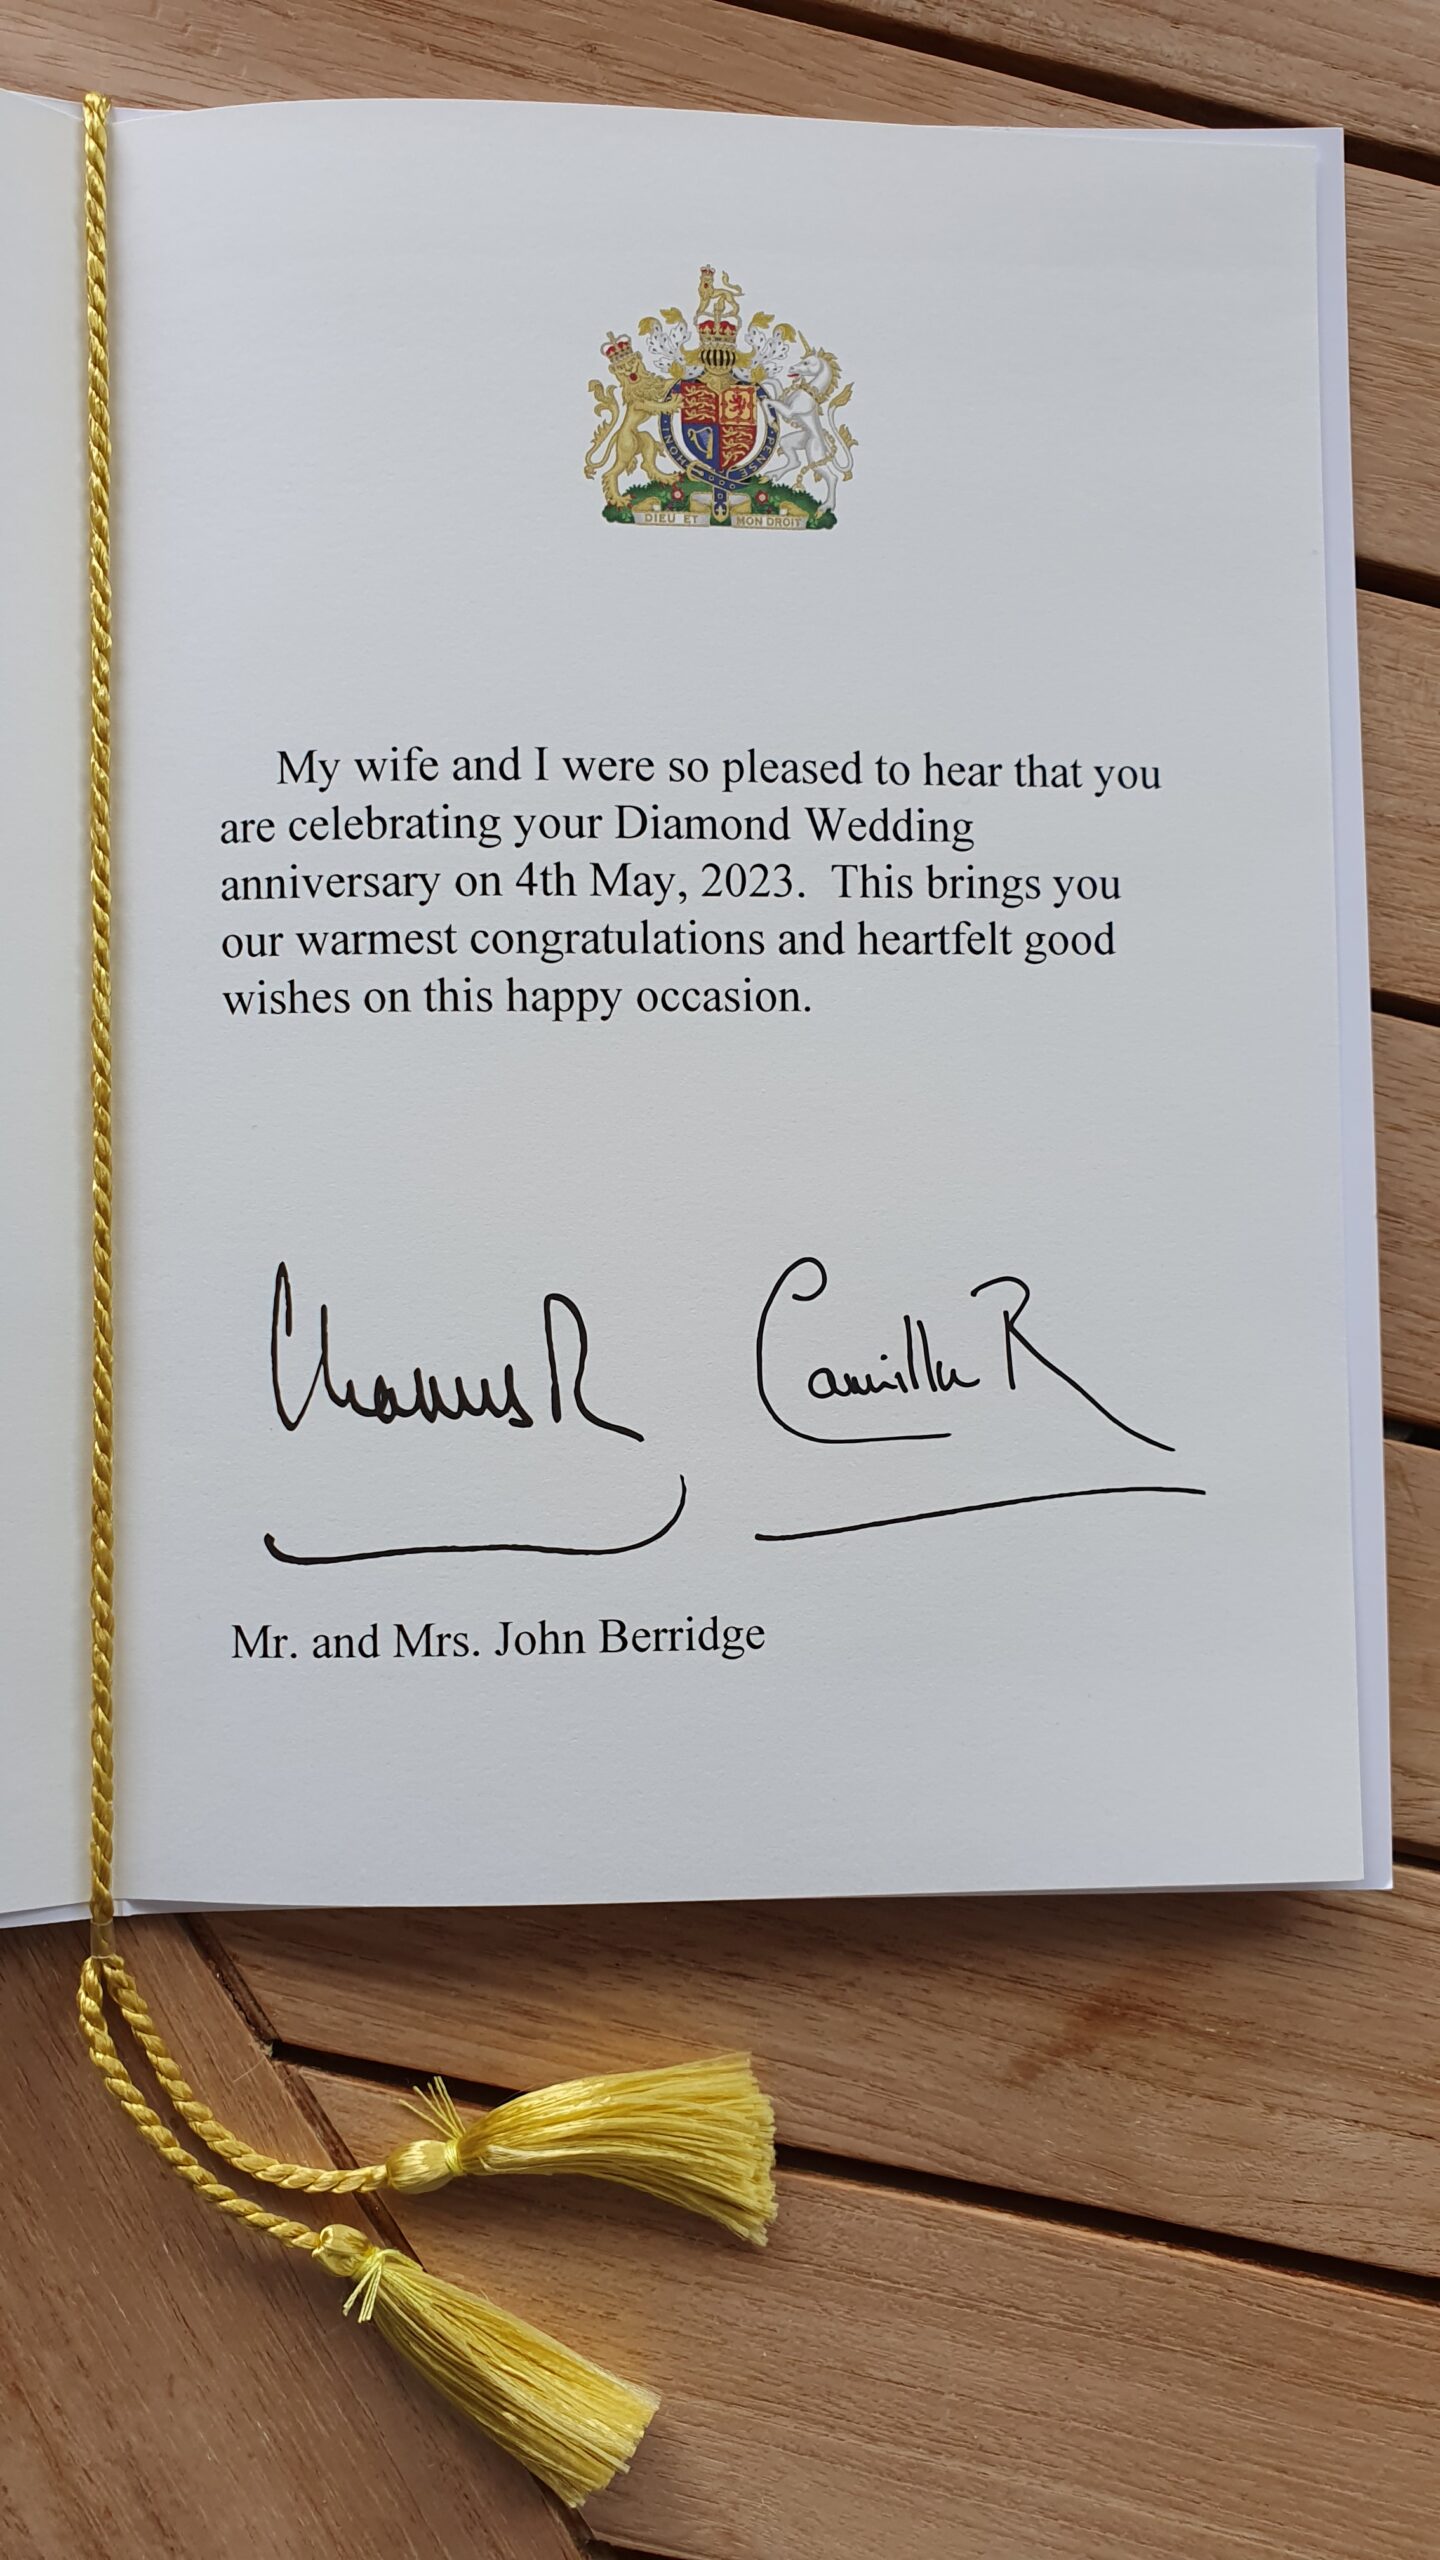 HONI
PENSE
DIEU ET MON DROIT
My wife and I were so pleased to hear that you
are celebrating your Diamond Wedding
anniversary on 4th May, 2023. This brings you
our warmest congratulations and heartfelt good
wishes on this happy occasion.
Charles R Camilla R
Mr. and Mrs. John Berridge